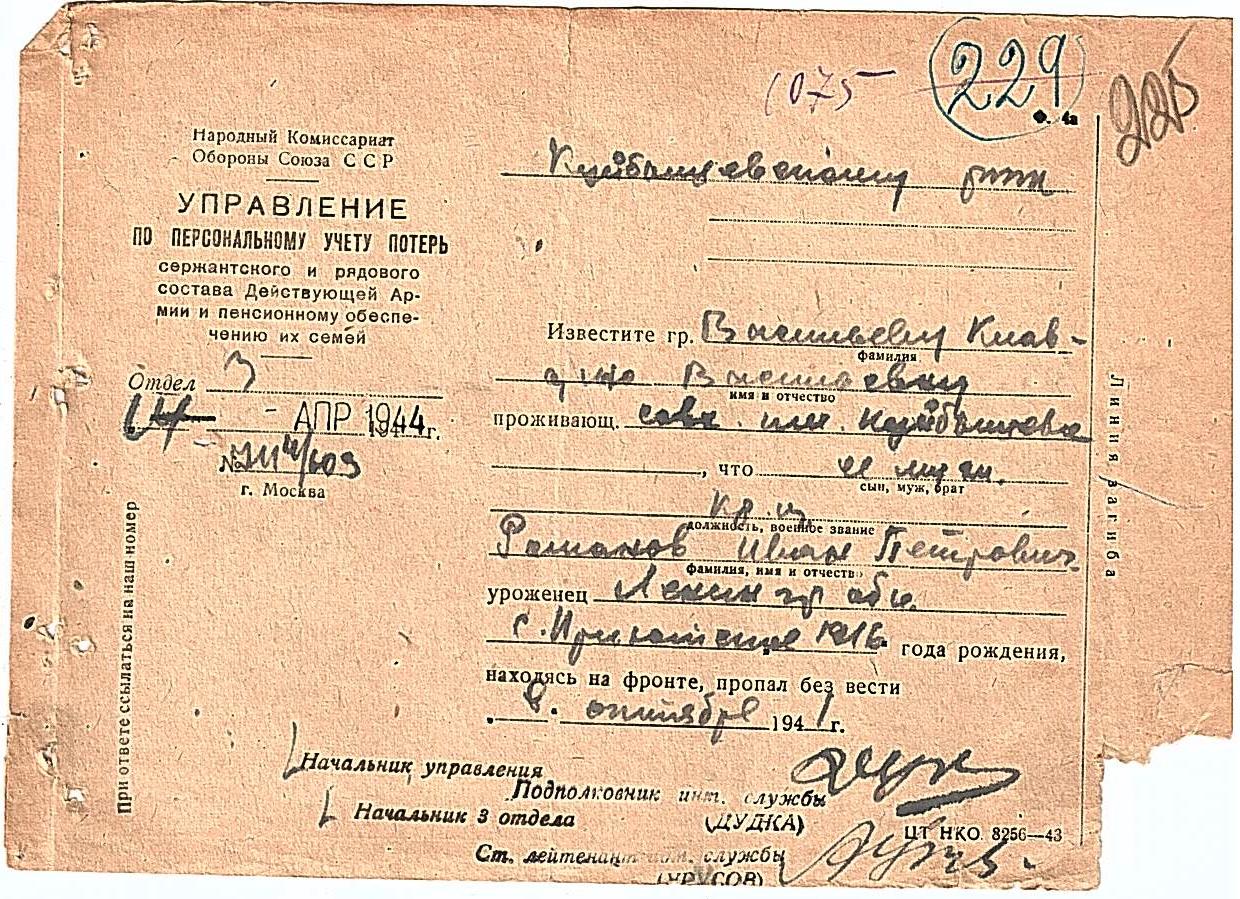 1075
229
225
Ф. 4а
Народный Комиссариат
Обороны Союза ССР
УПРАВЛЕНИЕ
ПО ПЕРСОНАЛЬНОМУ УЧЕТУ ПОТЕРЬ
сержантского и рядового
состава Действующей Ар-
мии и пенсионному обеспе-
чению их семей
Отдел 3
- АПР 1944 г.
№
г. Москва
При ответе ссылаться на наш номер
Куйбышевскому рвк
Известите гр. Васильеву Клав-
фамилия
дию Васильевну
имя и отчество
проживающ. совх. им. Куйбышева
, что ее муж.
сын, муж, брат
кр-ц
должность, военное звание
Романов Иван Петрович
фамилия, имя и отчество
уроженец Ленингр обл.
с. 1916 года рождения,
находясь на фронте, пропал без вести
8. октября 1941 г.
Линия загиба
Начальник управления
Подполковник инт. службы
(ДУДКА)
Начальник 3 отдела
Ст. лейтенант инт. службы
(УРУСОВ)
ЦТ НКО. 8256—43